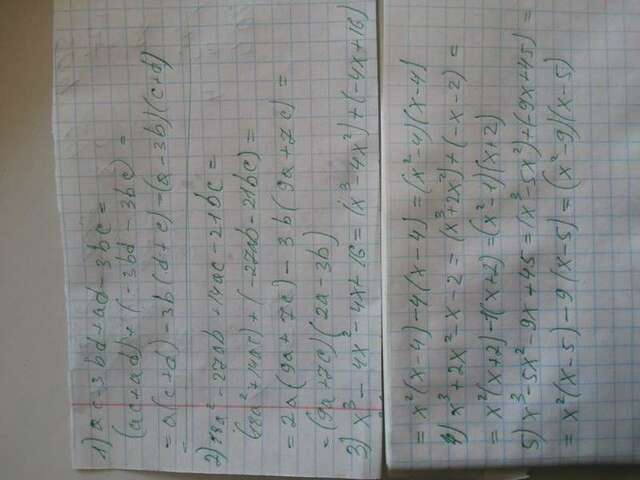 1) ac-3bd+ad-3bc=
(ac+ad)+(-3bd-3bc)=
=a(c+d)-3b(d+c)=(a-3b)(c+d)
=
2) 18a²-27ab+14ac-21bc=
(18a²+14ac)+(-27ab-21bc)=
=2a(9a+7c)-3b(9a+7c)=
=(9a+7c)(2a-3b)
3) x³-4x²-4x+16=(x³-4x²)+(-4x+16)
=x²(x-4)-4(x-4)=(x²-4)(x-4)
4) x³+2x²-x-2=(x³+2x²)+(-x-2)=
=x²(x+2)-1(x+2)=(x²-1)(x+2)
5) x³-5x²-9x+45=(x³-5x²)+(-9x+45)=
=x²(x-5)-9(x-5)=(x²-9)(x-5)